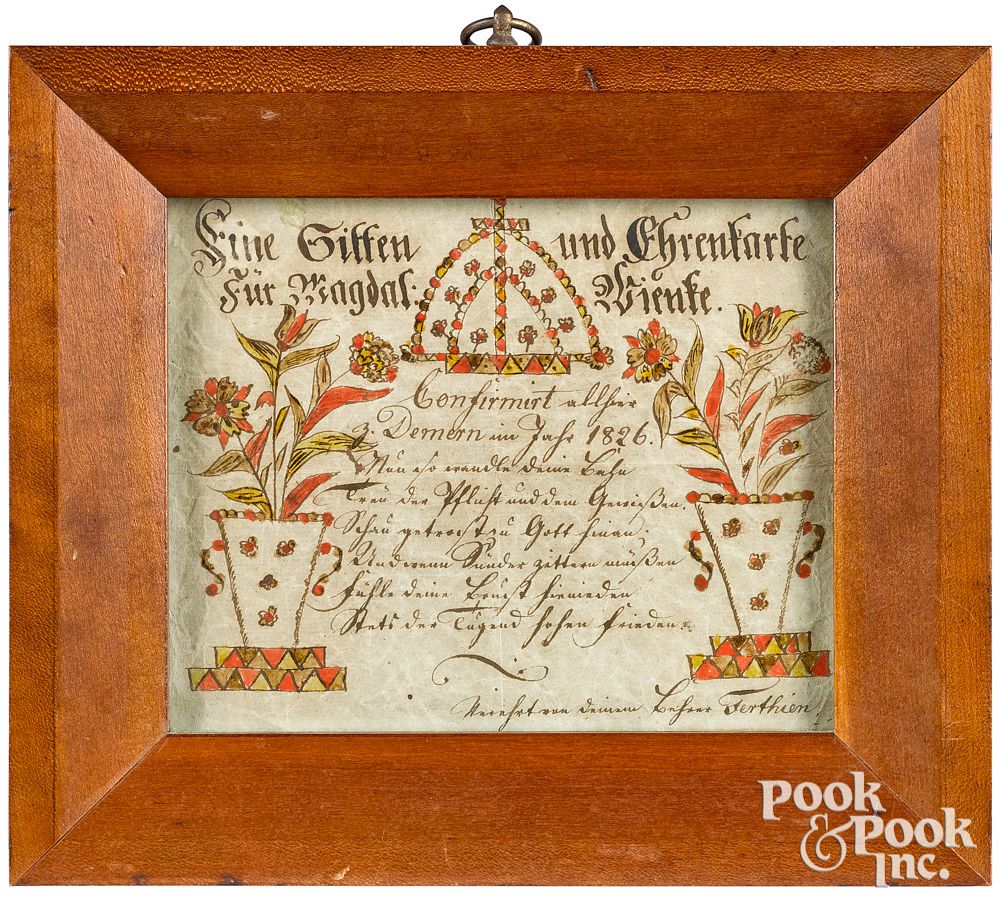 Eine Sitten und Ehrenkarte
Für Magdal: Wienke.
Confirmirt allhier
z. Demern im Jahr 1826.
Nun so wandle deine Bahn
Treu der Pflicht und dem Gewißen.
Schau getrost zu Gott hinan;
Und wenn Sünder zittern müßen
Fühle deine Brust hienieden
Stets der Tugend hohen Frieden.
Verehrt von deinem Lehrer Ferthien
POOK
& POOK
INC.